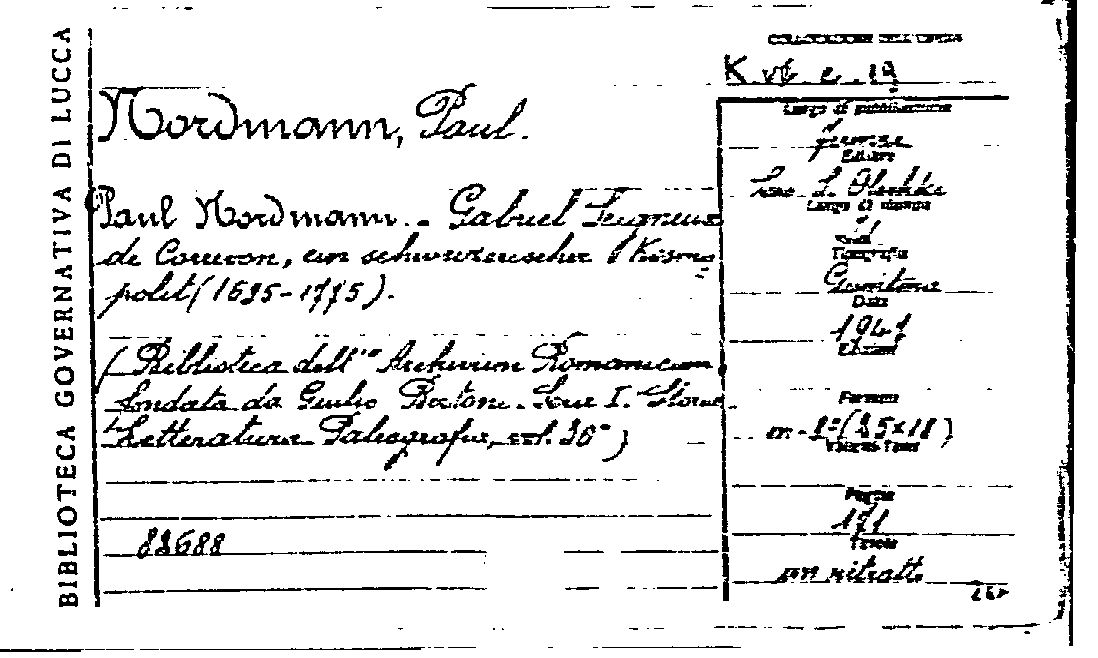 BIBLIOTECA GOVERNATIVA DI LUCCA
Nordmann, Paul.
Paul Nordmann. - Gabriel Seigneux
de Correvon, ein schweizerischer Kosmo=
polit (1695-1775).
(Biblioteca dell'" Archivum Romanicum
fondata da Giulio Bertoni. Serie I. Storia
Letteratura Paleografia, vol. 30°)
82688
COLLOCAZIONE DELL'OPERA
K vi e 19
Luogo di pubblicazione
Firenze
Editore
Leo L. Olschki
Luogo di stampa
Tipografia
Giuntina
Data
1941
Edizione
Formato
in-8°(25x18)
Volumi-Tomi
Pagine
171
Tavole
un ritratto